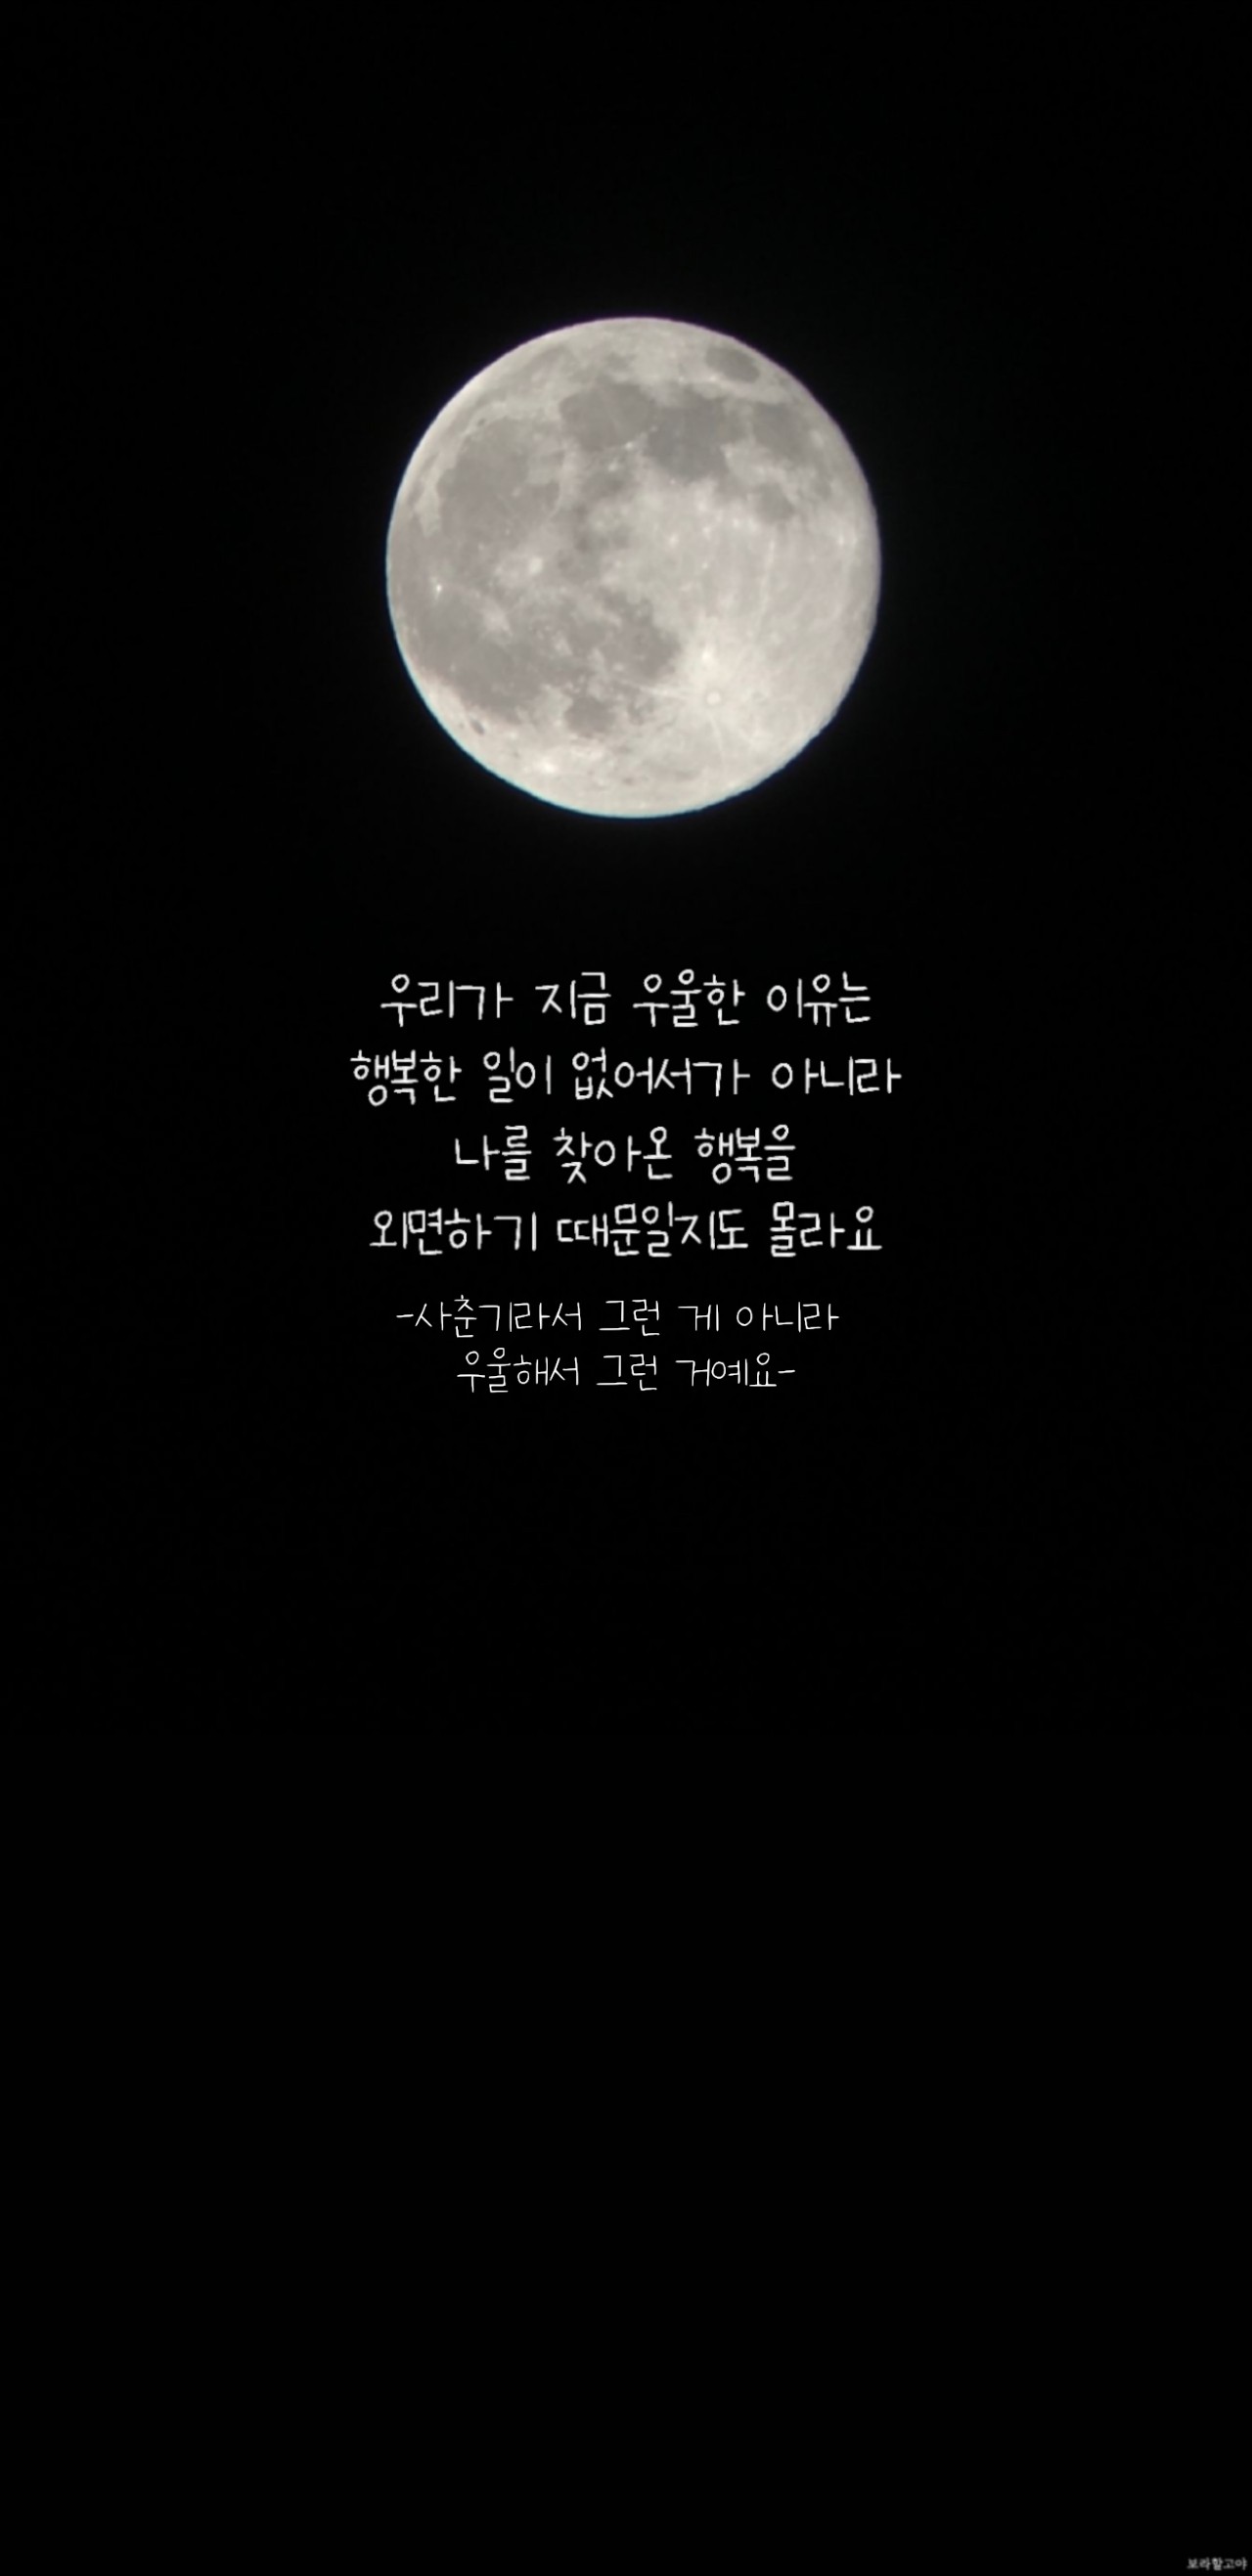 우리가 지금 우울한 이유는
행복한 일이 없어서가 아니라
나를 찾아온 행복을
외면하기 때문일지도 몰라요
-사춘기라서 그런 게 아니라
우울해서 그런 거예요-
보라할고야